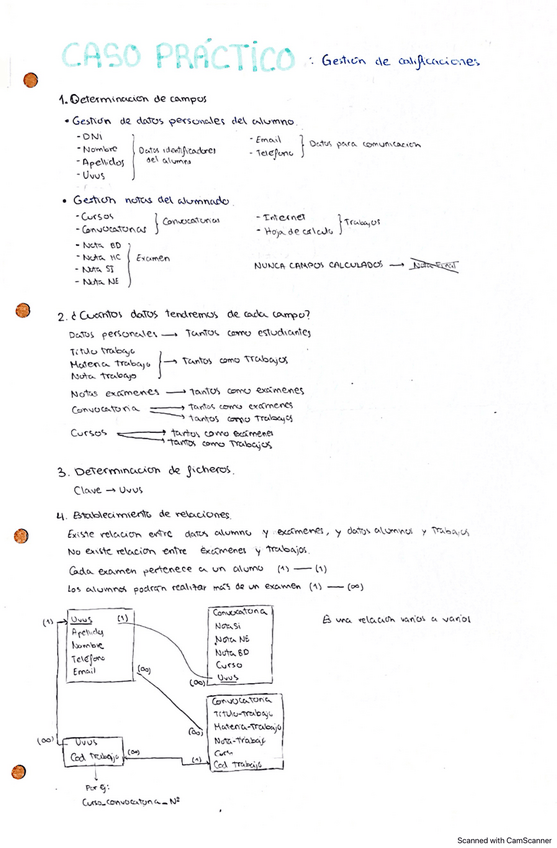 CASO PRÁCTICO : Gestión de calificaciones
1. Determinación de campos
• Gestión de datos personales del alumno.
- DNI
- Nombre
- Apellidos
- Uvus
Datos identificadores
del alumno
- Email
- Teléfono
Datos para comunicación
• Gestión notas del alumnado.
- Cursos
- Convocatorias
Convocatorias
- Nota BD
- Nota HC
- Nota SI
- Nota NE
Examen
- Internet
- Hoja de calculo
Trabajos
NUNCA CAMPOS CALCULADOS →
2. ¿Cuántos datos tendremos de cada campo?
Datos personales → Tantos como estudiantes
Título trabajo
Materia trabajo
Nota trabajo
→ Tantos como Trabajos
Notas exámenes → Tantos como exámenes
Convocatoria → Tantos como exámenes
→ Tantos como Trabajos
Cursos → tantos como exámenes
→ tantos como Trabajos
3. Determinación de ficheros.
Clave → Uvus
4. Establecimiento de relaciones.
Existe relación entre datos alumno y exámenes, y datos alumnos y trabajos
No existe relación entre exámenes y trabajos.
Cada examen pertenece a un alumo (1) — (1)
Los alumnos podrán realizar más de un examen (1) — (∞)
Es una relación varios a varios
(1) Uvus (1)
Apellidos
Nombre
Teléfono
Email
(∞)
Convocatoria
Nota SI
Nota NE
Nota BD
Curso
(∞) Uvus
(∞)
Convocatoria
Título-Trabajo
Materia-Trabajo
Nota-Trabajo
Curso
(1) Cod Trabajo
(∞) Uvus
Cod Trabajo (∞)
Por ej:
Curso_convocatoria_Nº
Scanned with CamScanner